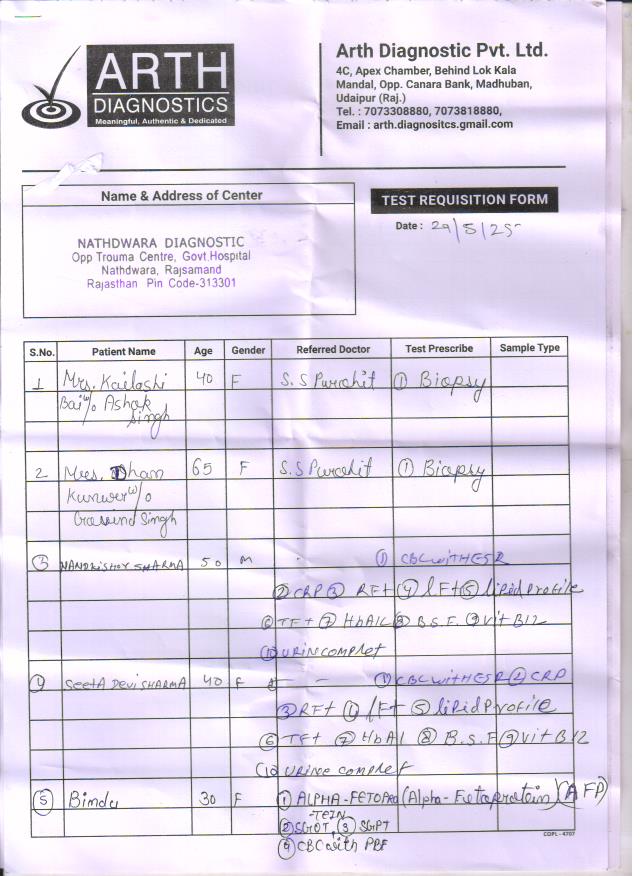 ARTH
DIAGNOSTICS
Meaningful, Authentic & Dedicated
Arth Diagnostic Pvt. Ltd.
4C, Apex Chamber, Behind Lok Kala
Mandal, Opp. Canara Bank, Madhuban,
Udaipur (Raj.)
Tel. : 7073308880, 7073818880,
Email : arth.diagnositcs.gmail.com
Name & Address of Center
TEST REQUISITION FORM
Date : 29/5/25
NATHDWARA DIAGNOSTIC
Opp Trouma Centre, Govt.Hospital
Nathdwara, Rajsamand
Rajasthan Pin Code-313301
S.No. Patient Name Age Gender Referred Doctor Test Prescribe Sample Type
1 Mrs. Kailashi 40 F S.S Purohit ① Biopsy
Bai w/o Ashok
Singh
2 Mrs. Dhan 65 F S.S Purohit ① Biopsy
Kunwer w/o
Singh
③ NANDKISHOR SHARMA 50 M - ① CBC WITH ESR
② CRP ③ RFT ④ LFT ⑤ lipid profile
⑥ TFT ⑦ HbA1C ⑧ B.S.F. ⑨ vit B12
⑩ URIN COMPLET
④ SEETA DEVI SHARMA 40 F - - ① CBC WITH ESR ② CRP
③ RFT ④ LFT ⑤ lipid Profile
⑥ TFT ⑦ HbA1 ⑧ B.S.F ⑨ vit B12
⑩ URINE COMPLET
⑤ Bimda 30 F ① ALPHA-FETOPRO (Alpha-Fetoprotein) (AFP)
-TEIN
② SGOT, ③ SGPT
④ CBC with PBF
CDPL - 4707